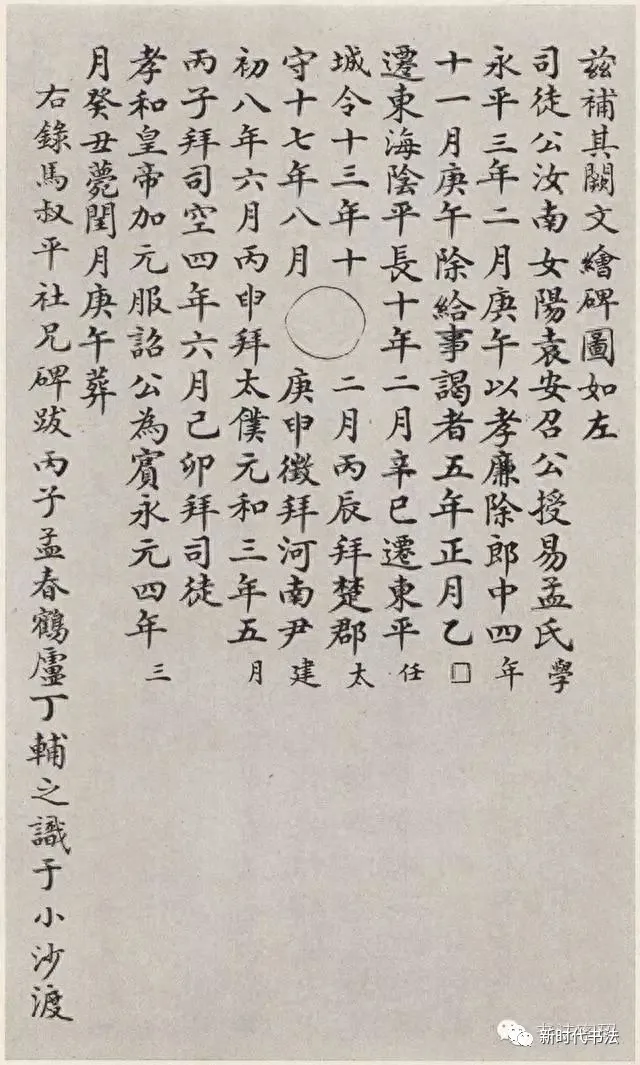 茲補其闕文繪碑圖如左
司徒公汝南女陽袁安召公授易孟氏學
永平三年二月庚午以孝廉除郎中四年
十一月庚午除給事謁者五年正月乙□
遷東海陰平長十年二月辛巳遷東平任
城令十三年十二月丙辰拜楚郡太
守十七年八月庚申徵拜河南尹建
初八年六月丙申拜太僕元和三年五月
丙子拜司空四年六月己卯拜司徒
孝和皇帝加元服詔公為賓永元四年三
月癸丑薨閏月庚午葬
右錄馬叔平社兄碑跋丙子孟春鶴廬丁輔之識于小沙渡
新时代书法